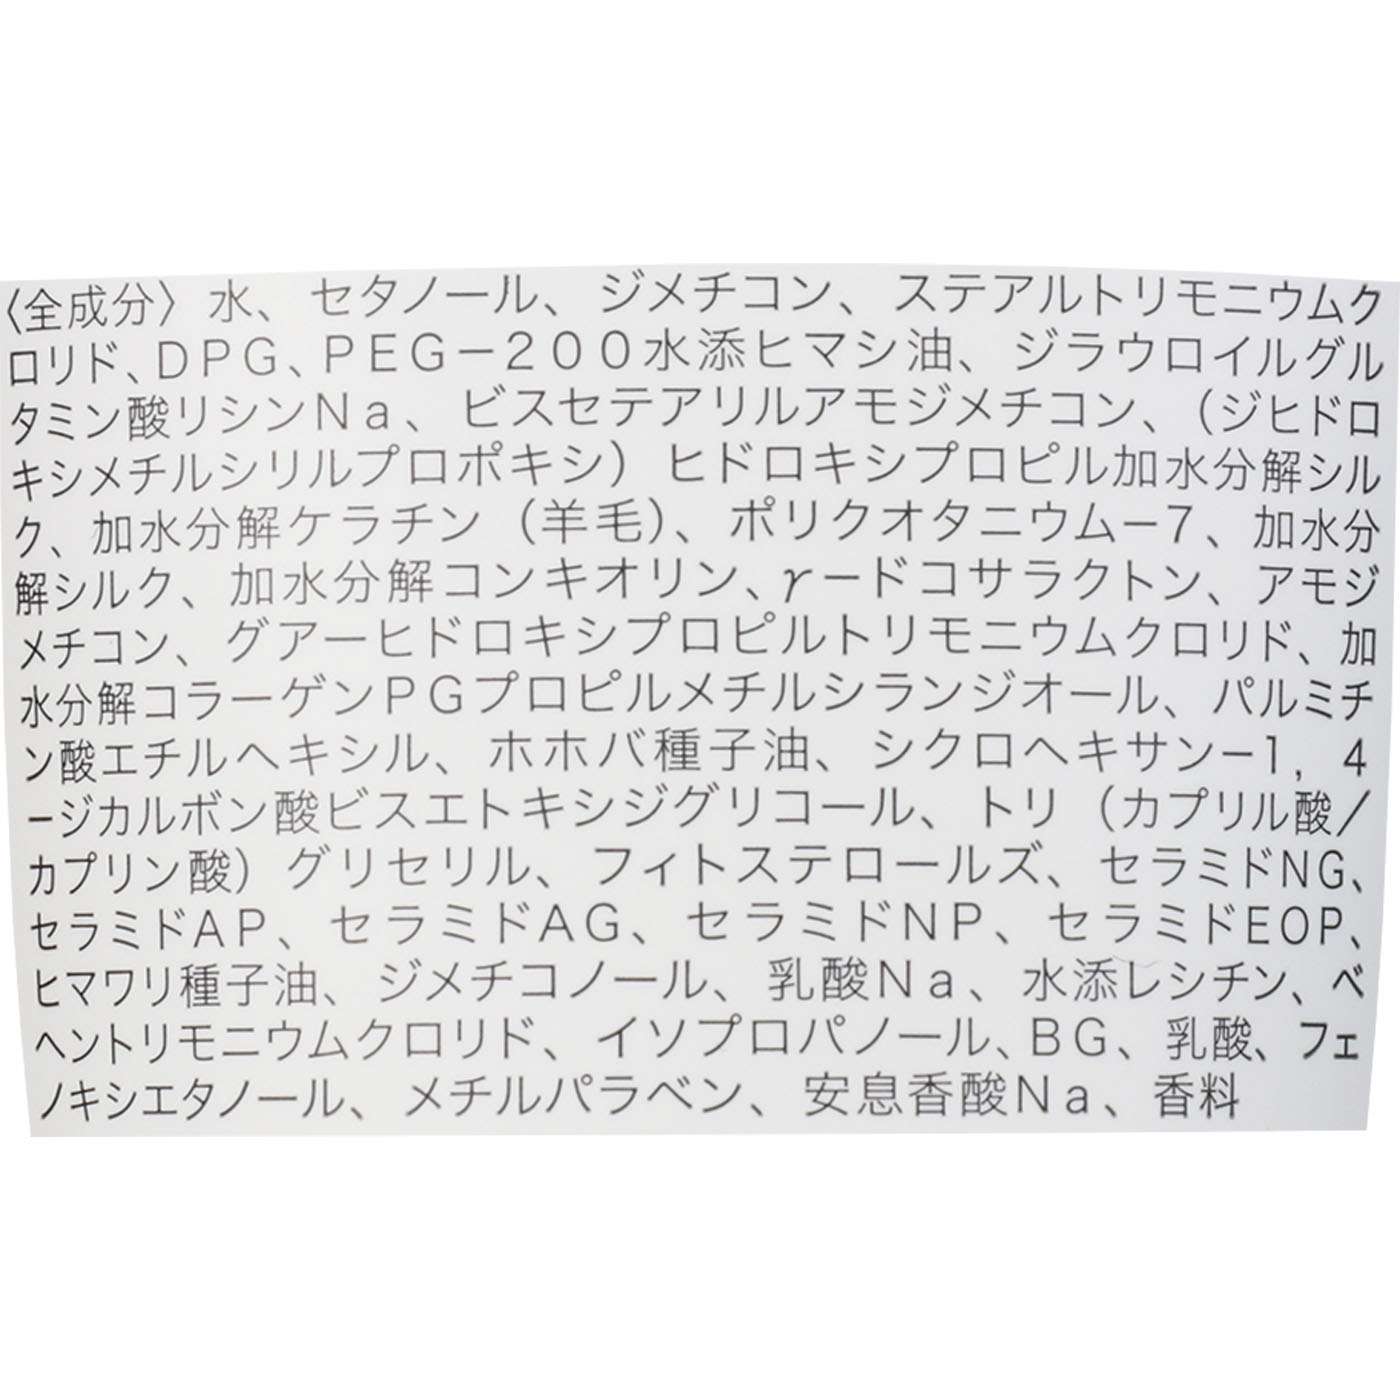 〈全成分〉水、セタノール、ジメチコン、ステアルトリモニウムク
ロリド、DPG、PEG－200水添ヒマシ油、ジラウロイルグル
タミン酸リシンNa、ビスセテアリルアモジメチコン、（ジヒドロ
キシメチルシリルプロポキシ）ヒドロキシプロピル加水分解シル
ク、加水分解ケラチン（羊毛）、ポリクオタニウム－7、加水分
解シルク、加水分解コンキオリン、γ－ドコサラクトン、アモジ
メチコン、グアーヒドロキシプロピルトリモニウムクロリド、加
水分解コラーゲンPGプロピルメチルシランジオール、パルミチ
ン酸エチルヘキシル、ホホバ種子油、シクロヘキサン－1，4
－ジカルボン酸ビスエトキシジグリコール、トリ（カプリル酸／
カプリン酸）グリセリル、フィトステロールズ、セラミドNG、
セラミドAP、セラミドAG、セラミドNP、セラミドEOP、
ヒマワリ種子油、ジメチコノール、乳酸Na、水添レシチン、ベ
ヘントリモニウムクロリド、イソプロパノール、BG、乳酸、フェ
ノキシエタノール、メチルパラベン、安息香酸Na、香料